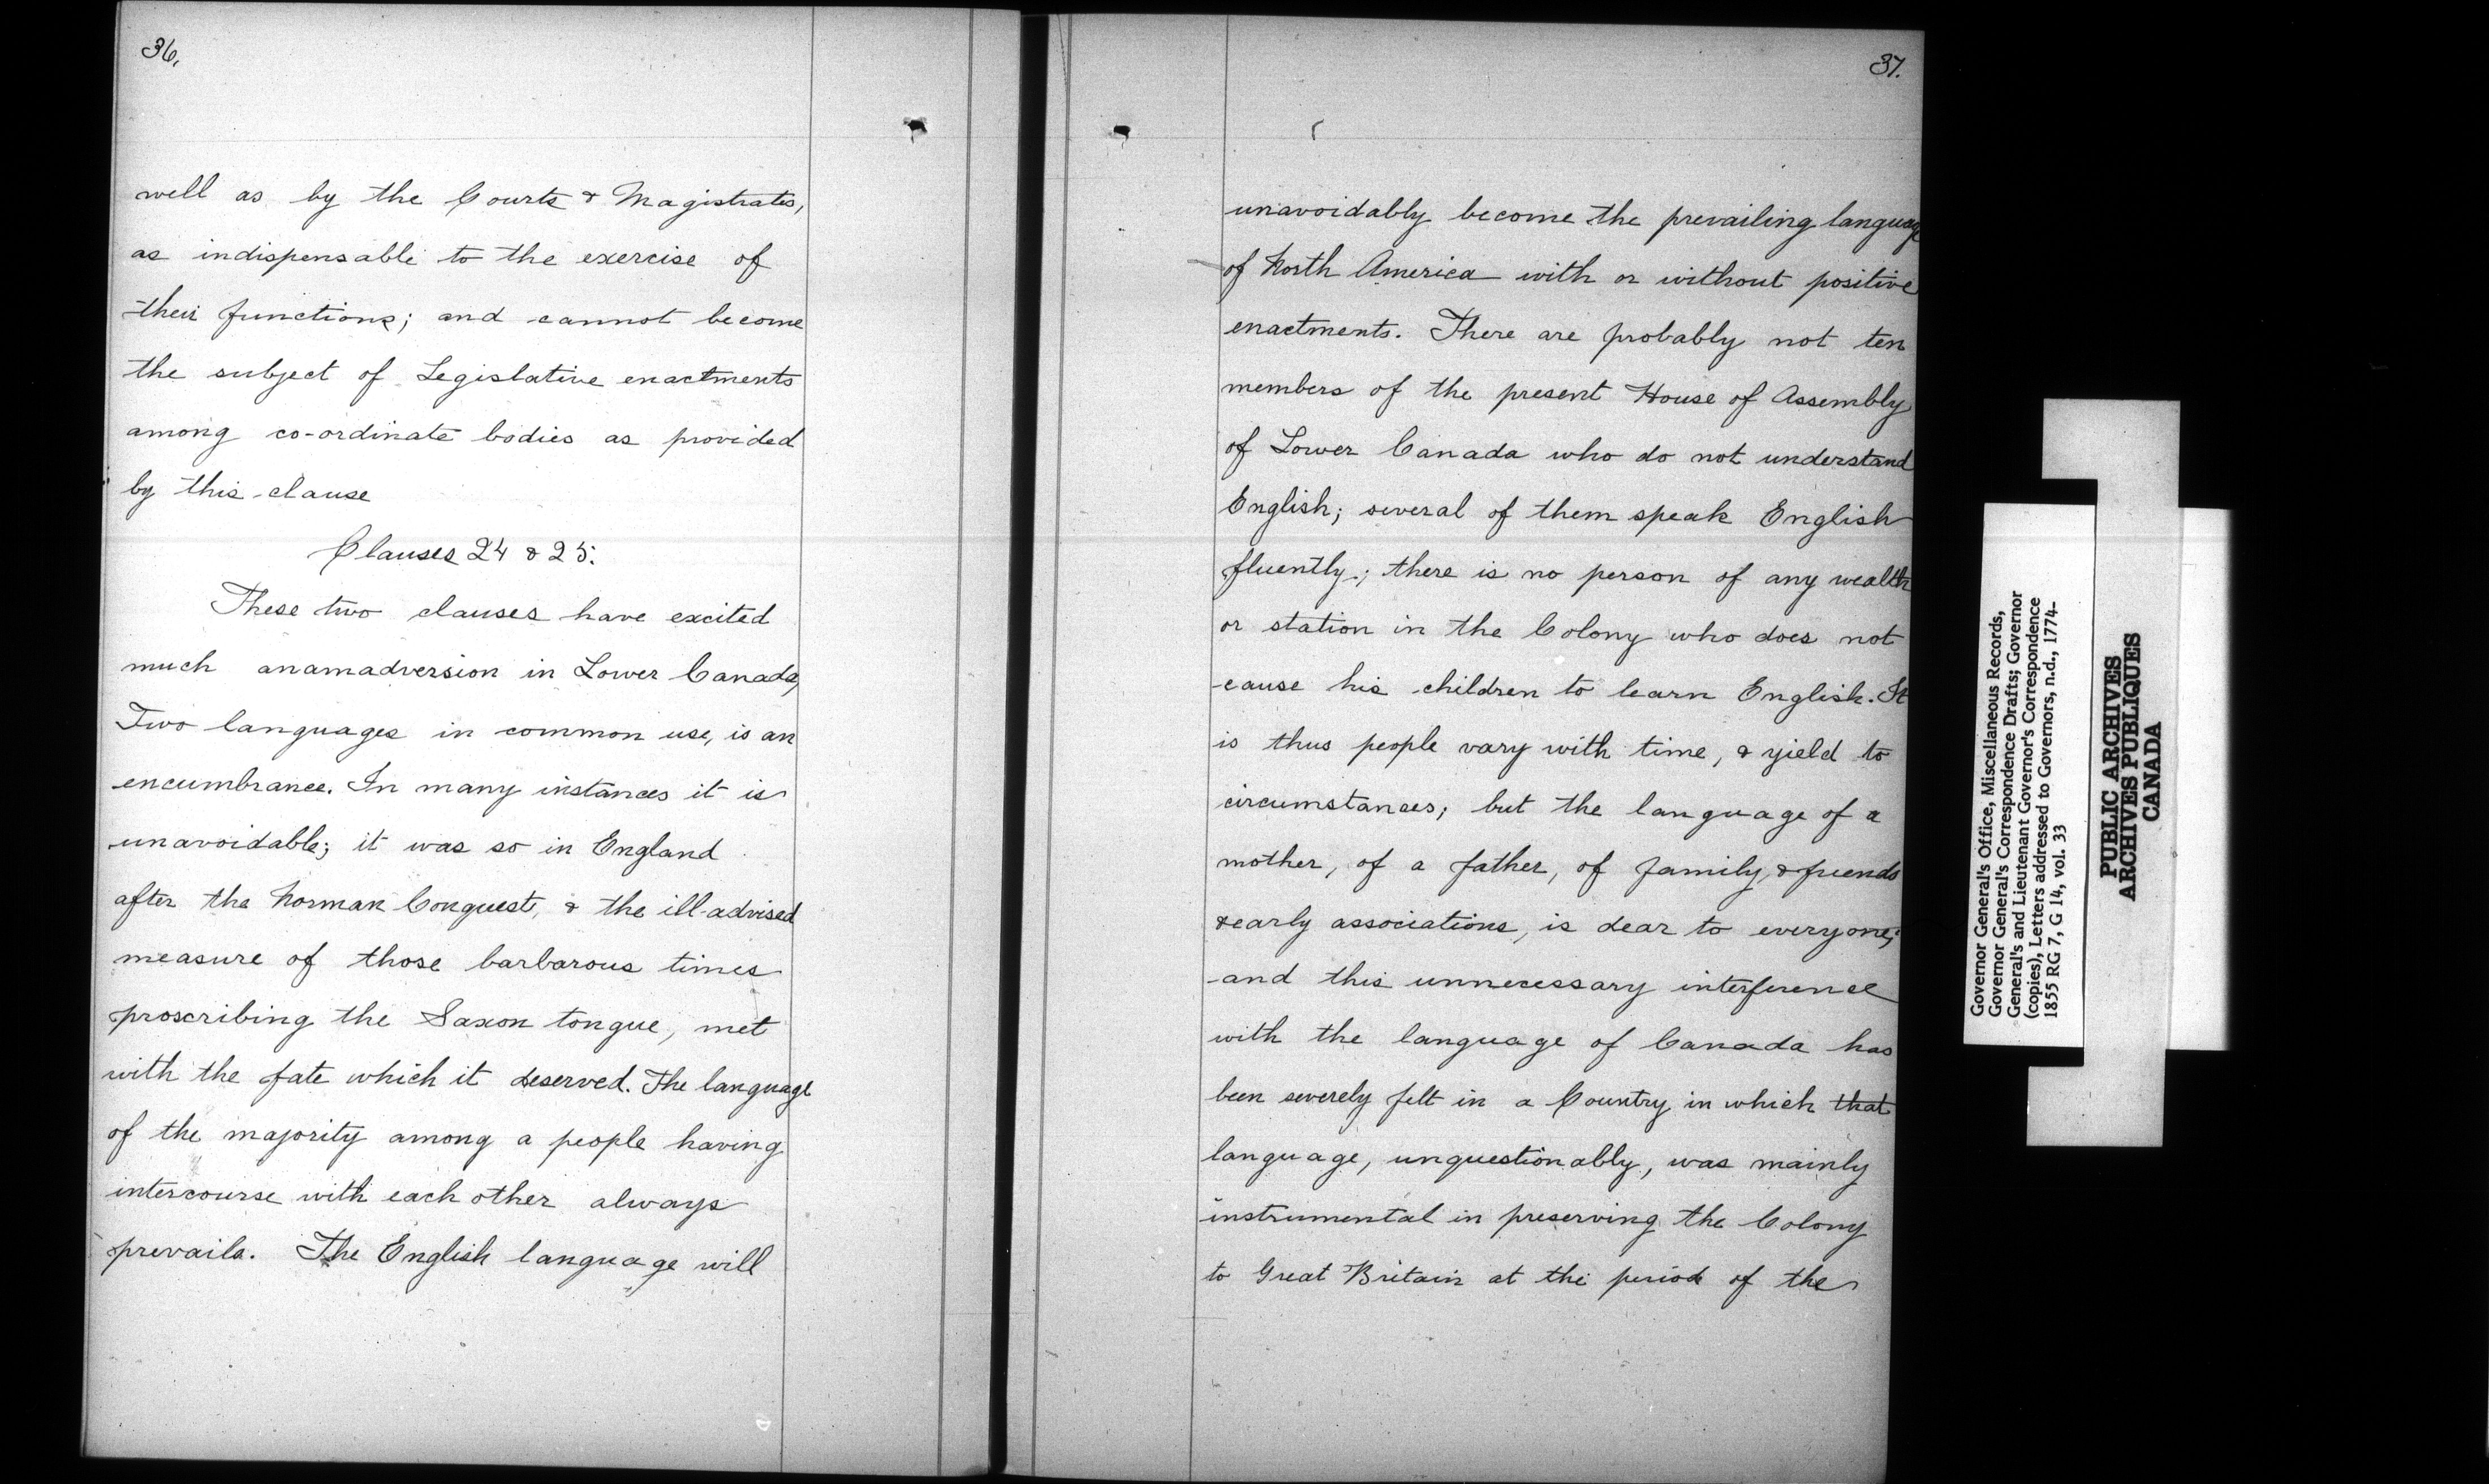 36,
well as by the Courts & Magistrates,
as indispensable to the exercise of
their functions; and cannot become
the subject of Legislative enactments
among co-ordinate bodies as provided
by this clause
Clauses 24 & 25:
These two clauses have excited
much anamadversion in Lower Canada,
Two languages in common use, is an
encumbrance. In many instances it is
unavoidable; it was so in England
after the Norman Conquest, & the ill-advised
measure of those barbarous times
proscribing the Saxon tongue, met
with the fate which it deserved. The language
of the majority among a people having
intercourse with each other always
prevails. The English language will
37.
unavoidably become the prevailing language
of North America with or without positive
enactments. There are probably not ten
members of the present House of Assembly
of Lower Canada who do not understand
English; several of them speak English
fluently; there is no person of any wealth
or station in the Colony who does not
cause his children to learn English. It
is thus people vary with time, & yield to
circumstances; but the language of a
mother, of a father, of family, & friends
& early associations, is dear to everyone;
and this unnecessary interference
with the language of Canada has
been severely felt in a Country in which that
language, unquestionably, was mainly
instrumental in preserving the Colony
to Great Britain at the period of the
Governor General's Office, Miscellaneous Records,
Governor General's Correspondence Drafts; Governor
General's and Lieutenant Governor's Correspondence
(copies), Letters addressed to Governors, n.d., 1774-
1855 RG 7, G 14, vol. 33
PUBLIC ARCHIVES
ARCHIVES PUBLIQUES
CANADA